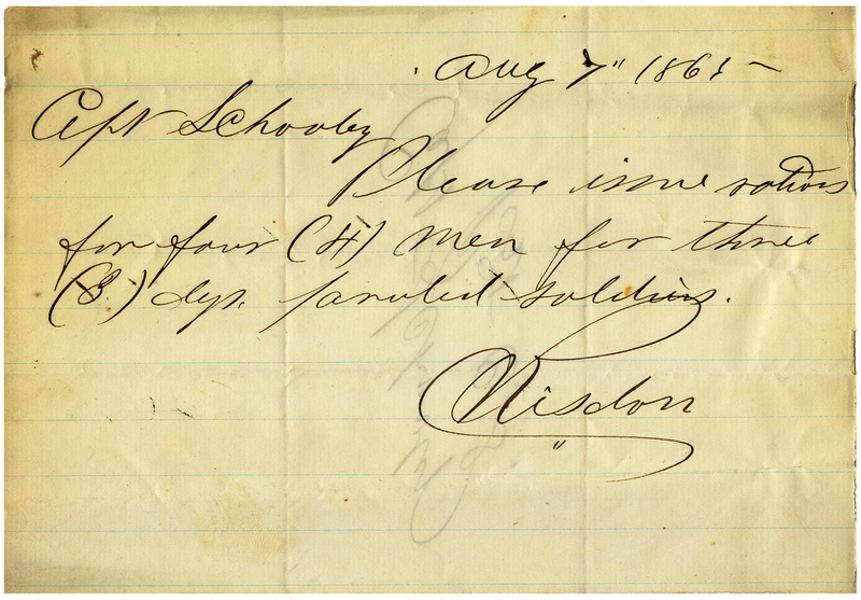 Aug 7" 1865 -
Capt Schooley
Please issue rations
for four (4) men for three
(3) dys. paroled soldiers.
Wisdon